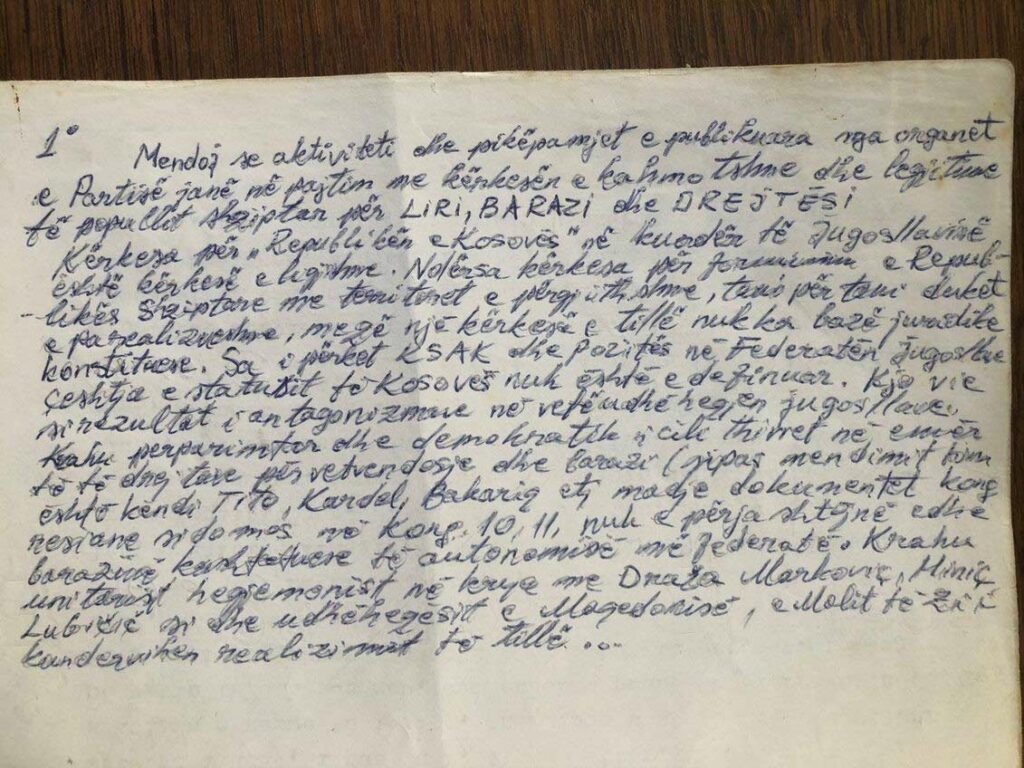 1°
Mendoj se aktiviteti dhe pikëpamjet e publikuara nga organet
e Partisë janë në pajtim me kërkesën e kahmotshme dhe legjitime
të popullit shqiptar për LIRI, BARAZI dhe DREJTËSI
Kërkesa për „Republikën e Kosovës" në kuadër të Jugosllavisë
është kërkesë e ligjshme. Ndërsa kërkesa për e Repub-
likës Shqiptare me territoret e përgjithshme, tani për tani duket
e parealizueshme, megë një kërkesë e tillë nuk ka bazë juridike
konstituese. Sa i përket KSAK dhe Pozitës në Federatën Jugosllave
çeshtja e statusit të Kosovës nuk është e definuar. Kjo vie
si rezultat i antagonizmave në vetë udhëheqjen jugosllave.
Krahu perparimtar dhe demokratik i cili thirret në emër
të të drejtave për vetvendosje dhe barazi (sipas mendimit tim
është këndi TITO, Kardel, Bakariq etj madje dokumentet kong
resiane sidomos në Kong. 10, 11, nuk e përjashtojnë edhe
barazinë kushtetuese të autonomisë në federatë. Krahu
unitarist hegjemonist në krye me Drazha Markoviç, Miniç
Lubiçiç si dhe udhëheqësit e Maqedonisë, e Malit të Zi i
kundervihen realizimit të tillë...